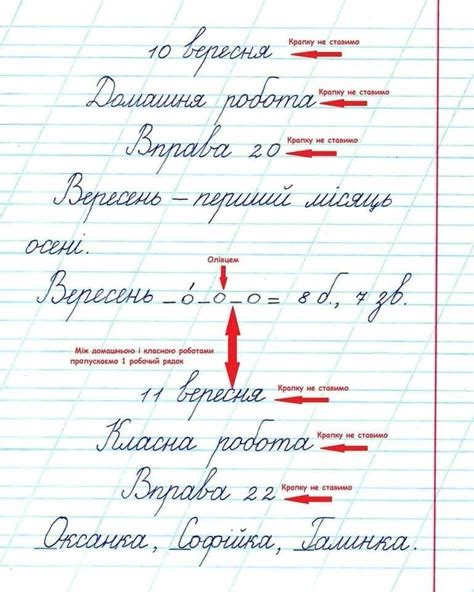 10 вересня Крапку не ставимо
Домашня робота Крапку не ставимо
Вправа 20 Крапку не ставимо
Вересень – перший місяць
осені.
Олівцем
Вересень – о́ – о – о = 8 б., 7 зв.
Між домашньою і класною роботами
пропускаємо 1 робочий рядок
11 вересня Крапку не ставимо
Класна робота Крапку не ставимо
Вправа 22 Крапку не ставимо
Оксанка, Софійка, Галинка.